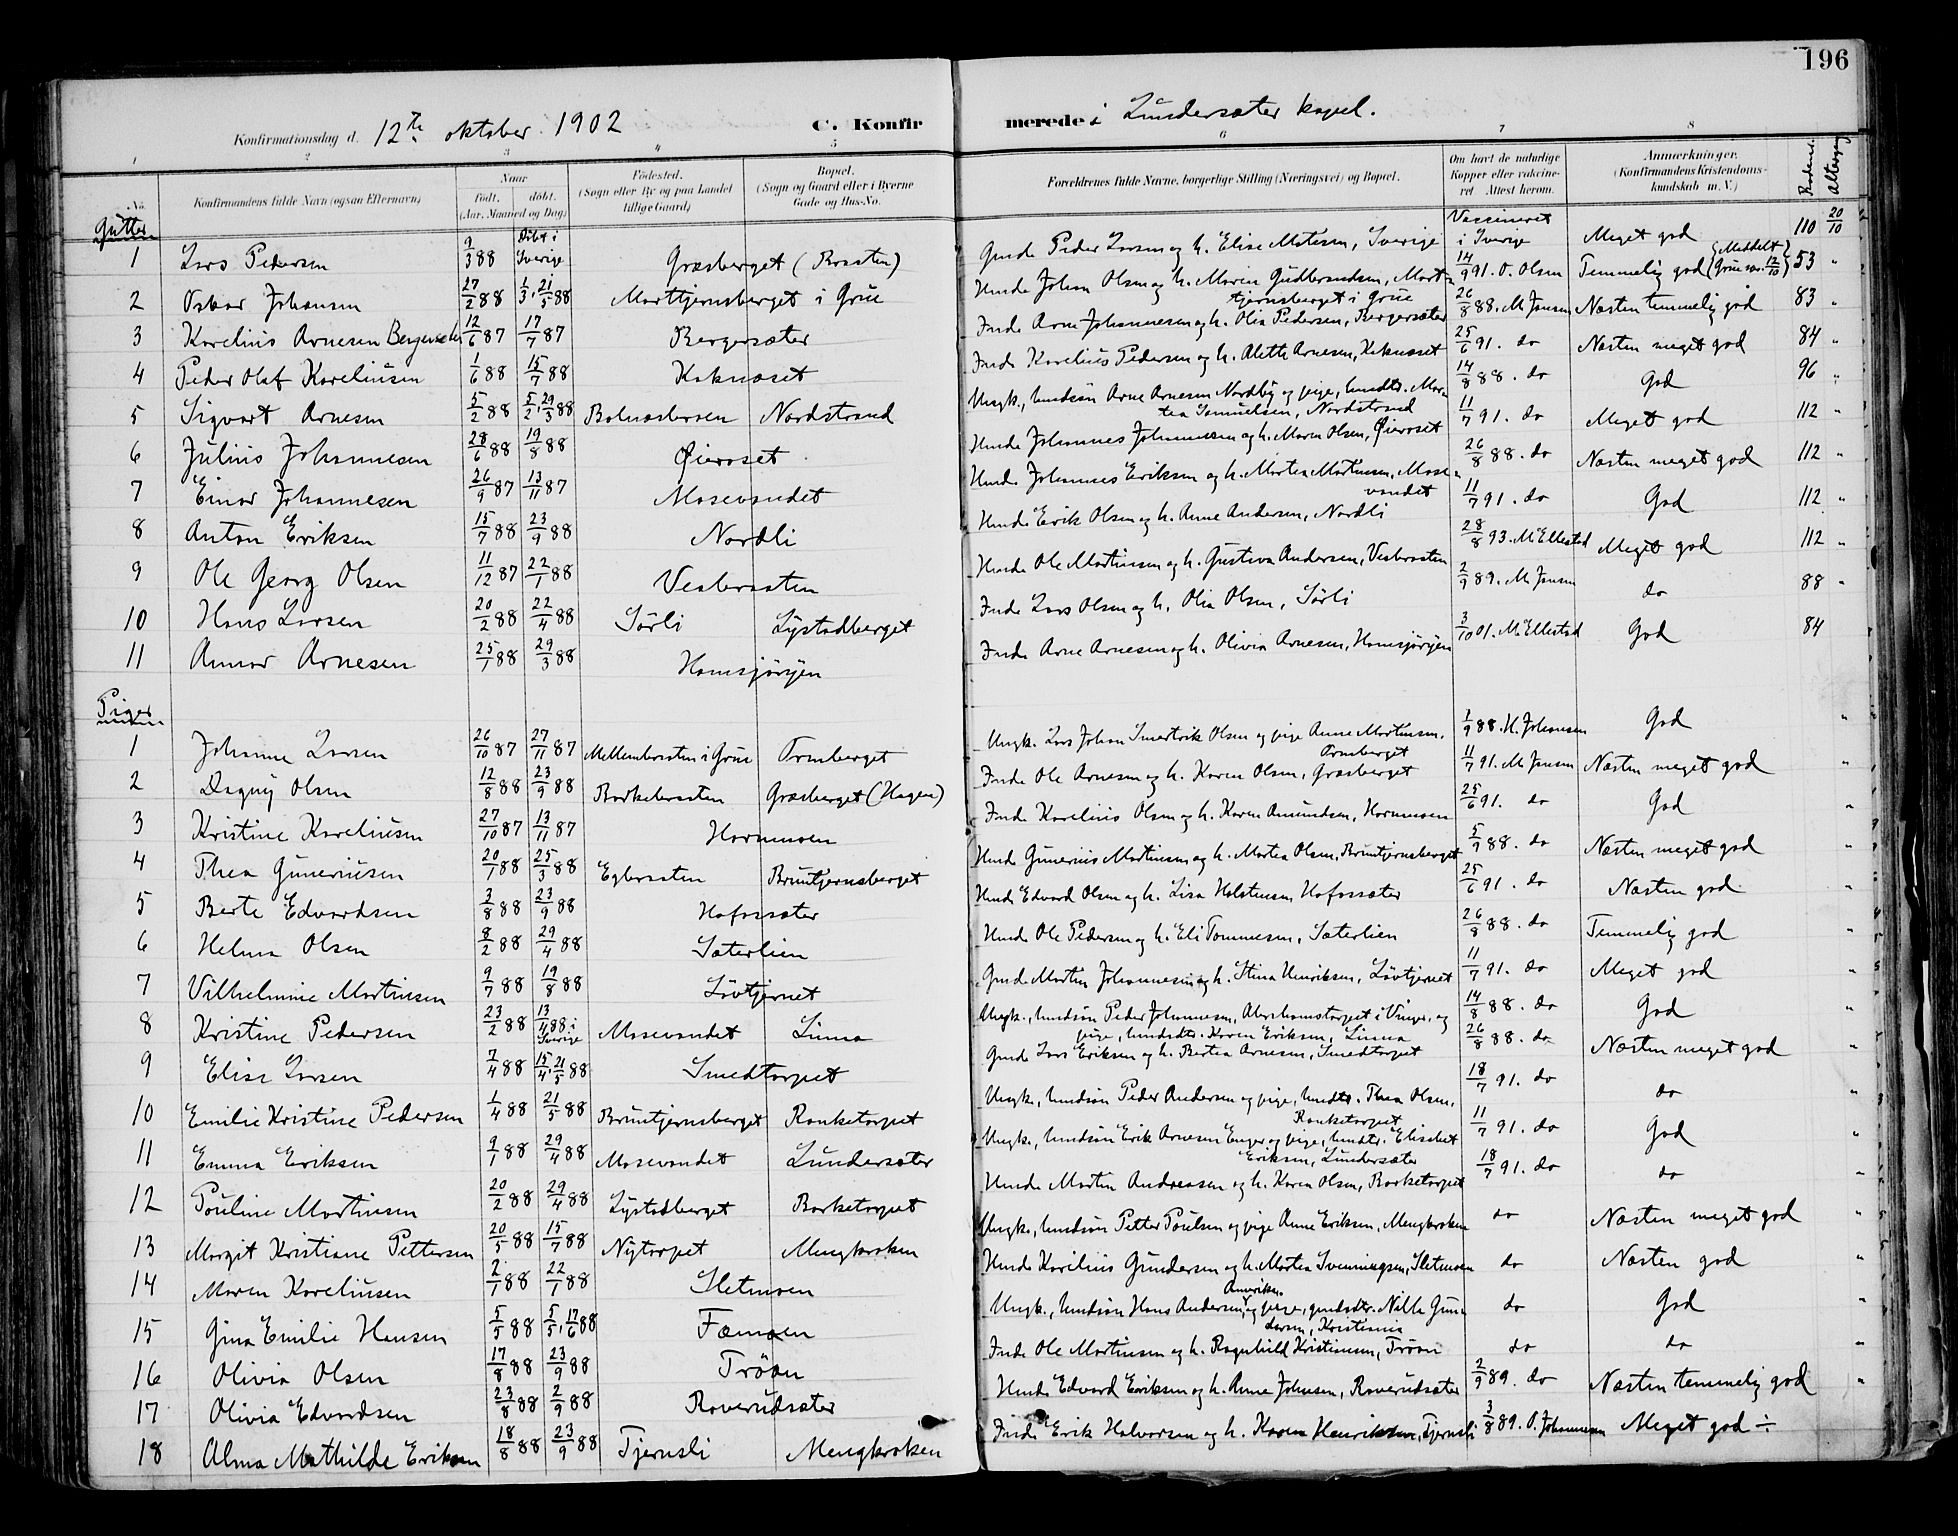 196
Konfirmationsdag d. 12te oktober 1902 C. Konfirmerede i Lundersæter kapel.
1 2 3 4 5 6 7 8
No. Konfirmandens fulde Navn (ogsaa Efternavn) Naar født. døbt. (Aar, Maaned og Dag) Fødested. (Sogn eller By og paa Landet tillige Gaard.) Bopæl. (Sogn og Gaard eller i Byerne Gade og Hus-No. Forældrenes fulde Navne, borgerlige Stilling (Næringsvei) og Bopæl. Om havt de naturlige Kopper eller vaccineret Attest herom. Anmærkninger. (Konfirmandens Kristendomskundskab m. V.) Altergang
Gutter
1 Lars Pedersen 9/3 88 Døbt i Sverige Græsberget (Braaten) Gmde Peder Larsen og h. Elise Matesen, Sverige Vaccineret i Sverige Meget god 110 20/10
2 Oskar Johansen 27/2 88 1/3, 21/5 88 Marttjernsberget i Grue Hmde Johan Olsen og h. Maren Gudbrandsen, Marttjernsberget i Grue 14/9 91. O. Olsen Temmelig god (Meddelt Grue 12/10) 53 "
3 Karelius Arnesen Bergersæter 12/6 87 17/7 87 Bergersæter Inde Arne Johannesen og h. Olia Pedersen, Bergersæter 26/8 88. M. Jensen Næsten temmelig god 83 "
4 Peder Olaf Kareliusen 1/6 88 15/7 88 Keknæset Inde Karelius Pedersen og h. Alette Arnesen, Keknæset 25/6 91. do Næsten meget god 84 "
5 Sigvart Arnesen 5/2 88 5/2, 29/3 88 Nordstrand Ungk., hmdsøn Arne Arnesen Nordby og pige, hmdtr. Martea Samuelsen, Nordstrand 14/8 88. do God 96 "
6 Julius Johannesen 28/6 88 19/8 88 Øieraset Hmde Johannes Johannesen og h. Maren Olsen, Øieraset 11/7 91. do Meget god 112 "
7 Einar Johannesen 26/9 87 13/11 87 Masevandet Hmde Johannes Eriksen og h. Martea Martinsen, Masevandet 26/8 88. do Næsten meget god 112 "
8 Anton Eriksen 15/7 88 23/9 88 Nordli Hmde Erik Olsen og h. Anne Andersen, Nordli 11/7 91. do God 112 "
9 Ole Georg Olsen 11/12 87 22/1 88 Vesbraaten Hmde Ole Martinsen og h. Gustava Andersen, Vesbraaten 28/8 93. M. Ellestad Meget god 112 "
10 Hans Larsen 20/2 88 22/4 88 Sørli Lystadberget Inde Lars Olsen og h. Olia Olsen, Sørli 2/9 89. M. Jensen do 88 "
11 Annar Arnesen 25/1 88 29/3 88 Hamsjørgen Inde Arne Arnesen og h. Olivia Arnesen, Hamsjørgen 3/10 01. M. Ellestad God 84
Piger
1 Johanne Larsen 26/10 87 27/11 87 Mellembraaten i Grue Ormberget Ungk. Lars Johan Olsen og pige Anne Martinsen, Ormberget 1/9 88. H. Johansen God "
2 Dagny Olsen 12/8 88 23/9 88 Barkebraaten Græsberget (Hagen) Inde Ole Arnesen og h. Karen Olsen, Græsberget 11/7 91. M. Jensen Næsten meget god "
3 Kristine Kareliusen 27/10 87 13/11 87 Harmoen Inde Karelius Olsen og h. Karen Amundsen, Harmoen 25/6 91. do God "
4 Thea Gunerius​en 20/1 88 25/3 88 Egbraaten Bruntjernsberget Hmde Gunerius Martinsen og h. Martea Olsen, Bruntjernsberget 5/9 88. do Næsten meget god "
5 Berte Edvardsen 3/8 88 23/9 88 Hafossæter Hmde Edvard Olsen og h. Lisa Halstensen, Hafossæter 25/6 91. do Næsten god "
6 Helma Olsen 8/2 88 29/4 88 Sæterlien Hmde Ole Pedersen og h. Eli Tommesen, Sæterlien 26/8 88. do Temmelig god "
7 Vilhelmine Martinsen 9/7 88 19/8 88 Løvtjernet Gmde Martin Johannesen og h. Stina Henriksen, Løvtjernet 11/7 91. do Meget god "
8 Kristine Pedersen 23/2 88 13/4 88 i Sverige Masevandet Linna Ungk., hmdsøn Peder Johannesen, Abrahamstorpet i Vinger, og pige, hmdsdtr. Karen Eriksen, Linna 14/8 88. do God "
9 Elise Larsen 7/4 88 15/4, 21/5 88 Smedtorpet Gmde Lars Eriksen og h. Bertea Arnesen, Smedtorpet 26/8 88. do Næsten meget god "
10 Emilie Kristine Pedersen 1/4 88 21/5 88 Bruntjernsberget Ranketorpet Ungk., hmdsøn Peder Andersen og pige, hmdtr. Thea Olsen, Ranketorpet 18/7 91. do do "
11 Emma Eriksen 9/1 88 29/4 88 Masevandet Lundersæter Ungk., hmdsøn Erik Arnesen Enger og pige, hmdtr. Elisabet Eriksen, Lundersæter 11/7 91. do God "
12 Pauline Martinsen 20/2 88 29/4 88 Lystadberget Barketorpet Hmde Martin Andreassen og h. Karen Olsen, Barketorpet 18/7 91. do do "
13 Margit Kristiane Pettersen 20/5 88 15/7 88 Nytorpet Mengkroken Ungk., hmdsøn Petter Paulsen og pige Anne Eriksen, Mengkroken do Næsten meget god "
14 Maren Kareliusen 2/1 88 22/1 88 Sletmoen Hmde Karelius Gundersen og h. Martea Svenningsen, Sletmoen do Næsten god "
15 Gina Emilie Hansen 5/5 88 5/5, 17/6 88 Fæmoen Ungk., hmdsøn Hans Andersen, Amerika og pige, gmdsdtr. Nille Gundersen, Kristiania do God "
16 Olivia Olsen 17/8 88 23/9 88 Trøen Inde Ole Martinsen og h. Ragnhild Kristiansen, Trøen do do "
17 Olivia Edvardsen 23/8 88 2/9 88 Raverudsæter Hmde Edvard Eriksen og h. Anne Johnsen, Raverudsæter 2/9 89. do Næsten temmelig god "
18 Alma Mathilde Eriksen 18/8 88 23/9 88 Tjernsli Mengkroken Inde Erik Halvorsen og h. Karen Henriksen, Tjernsli 3/8 89. O. Johannesen Meget god ÷